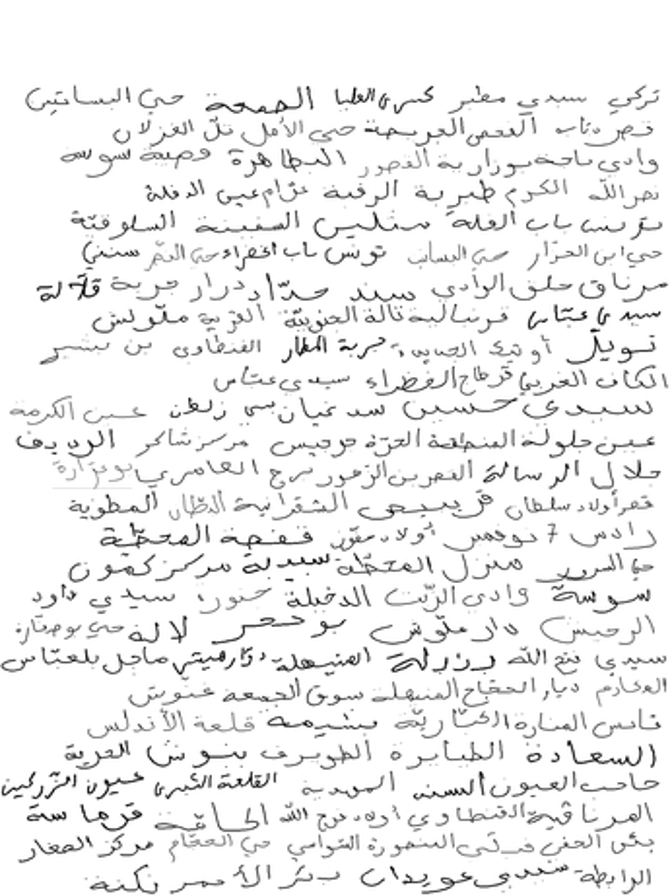 تركي سيدي مطير كسرى العليا الجمعة حي البساتين
قصر غيلان الفحص العريضة حي الأمل تل الغزلان
وادي باجة بوزارية القصور الطاهرة قصيبة سوسة
نصر الله الكرم طبربة الرقبة غرام عيسى الدقلة
تونس باب الفلة سفليس السفينة السلوقية
حي ابن الجزار حي البساتين تونس باب الخضراء حي النصر سنني
مرناق حلق الوادي سيند حداد درار جربة قلالة
سيدي عباس قرنبالية تالة الجنوبية القرية ملولش
نويل أوتيك الجديدة جربة المطار الفنطاوي بن بشير
الكاف الغربي قرطاج الخضراء سيدي عباس
سيدي حسين سد نبهان زلطن عين الكرمة
عين جلولة المنطقة الحرة جرجيس مركز شاكر الرديف
جلال الرسالة القصرين الزهور برج العامري بومرارة
قصر أولاد سلطان قريبيص الشقرانية الدخان المطوية
رادس 7 نوفمبر أولاد معتوق قفصة المحطة
حي السرور منزل المحطة سبيبة مركز كمون
سوسة وادي الزيت الدخيلة سيدي داود
الرحيش دار ملولش بوحجر لالة حي بوصفارة
سيدي فتح الله برزلة المنيهلة ماجل بلعباس
المكارم ديار الحجاج المنيهلة سوق الجمعة غنوش
قابس المنارة الكبارية بشيمة قلعة الأندلس
السعادة الطبابرة الطويرف بنوش العربة
حاجب العيون السند المهدية القلعة الكبرى عيون الزركين
المرناقية القنطاوي أولاد فرج الله الحاقة قرماسة
بئر الحفي المنصورة القوامي حي الحكام مركز الصغار
الرابطة سيدي عويدات بئر الأحمر نكنة